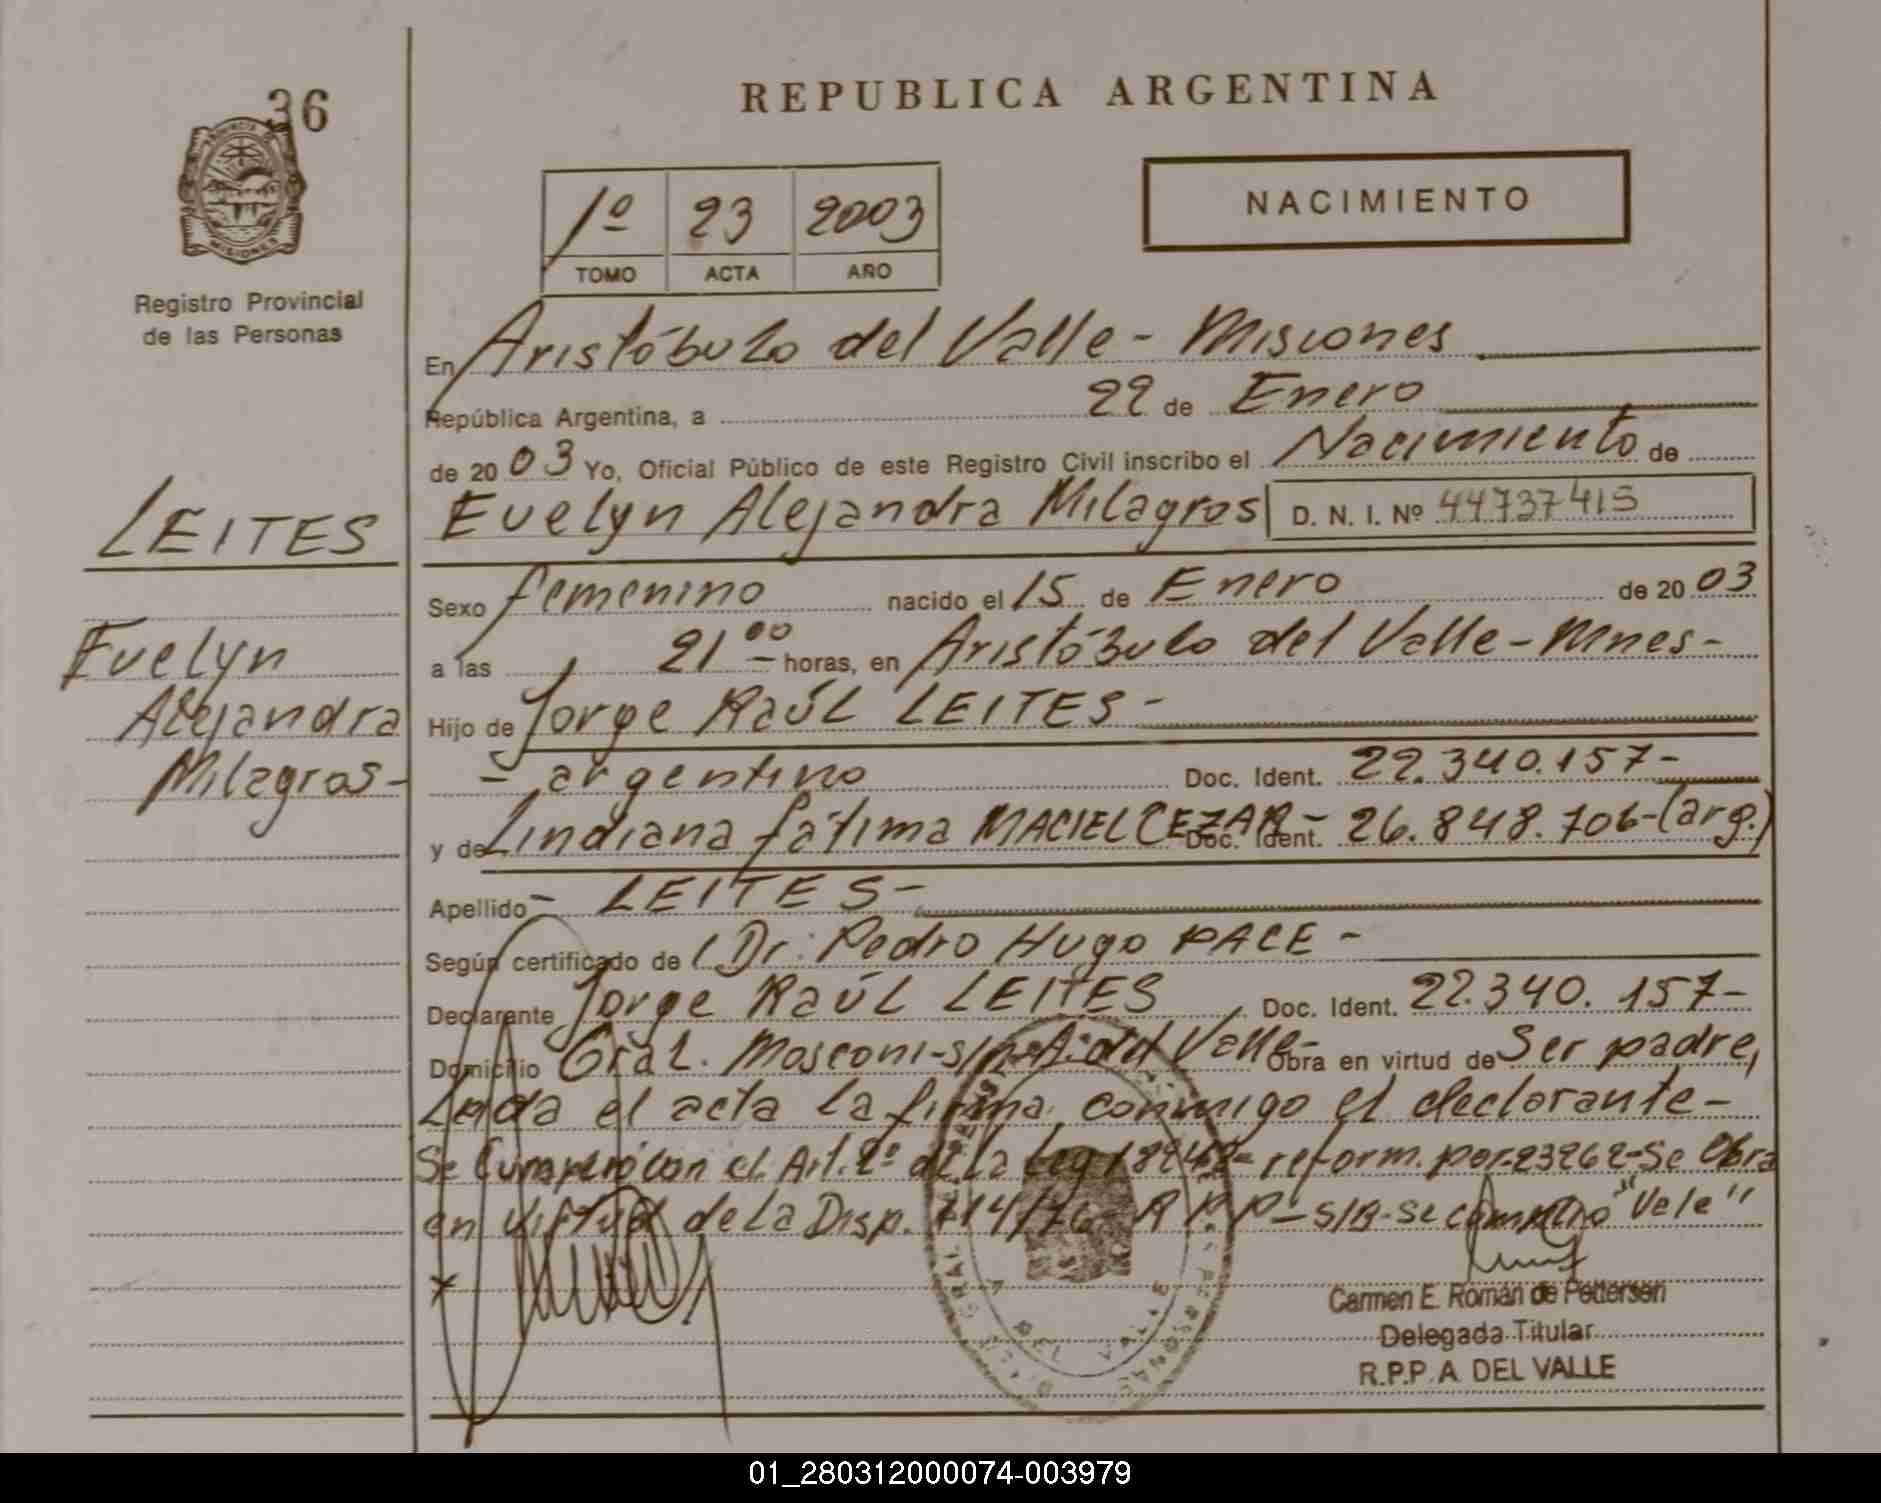 36
PROVINCIA DE
MISIONES
Registro Provincial
de las Personas
LEITES
Evelyn
Alejandra
Milagros-
REPUBLICA ARGENTINA
1º 23 2003
TOMO ACTA AÑO
NACIMIENTO
En Aristóbulo del Valle - Misiones
República Argentina, a 22 de Enero
de 2003 Yo, Oficial Público de este Registro Civil inscribo el Nacimiento de
Evelyn Alejandra Milagros D. N. I. Nº 44737415
Sexo femenino nacido el 15 de Enero de 2003
a las 21 00 horas, en Aristóbulo del Valle - Mnes-
Hijo de Jorge Raúl LEITES -
- argentino Doc. Ident. 22.340.157-
y de Lindiana fátima MACIEL CEZAR - Doc. Ident. 26.848.706-(arg.)
Apellido - LEITES -
Según certificado de l Dr. Pedro Hugo PACE -
Declarante Jorge Raúl LEITES Doc. Ident. 22.340.157-
Domicilio Gral. Mosconi-s/n-A. del Valle- Obra en virtud de Ser padre,
Leída el acta la firma conmigo el declarante-
Se Cumplió con el Art. 2º de la Ley 18248- reform. por 23262-Se Obra
en virtud de la Disp. 714/76- R.P.P- S/R-Se "Vele"
x
Carmen E. Román de Pettersen
Delegada Titular
R.P.P. A DEL VALLE
01_280312000074-003979